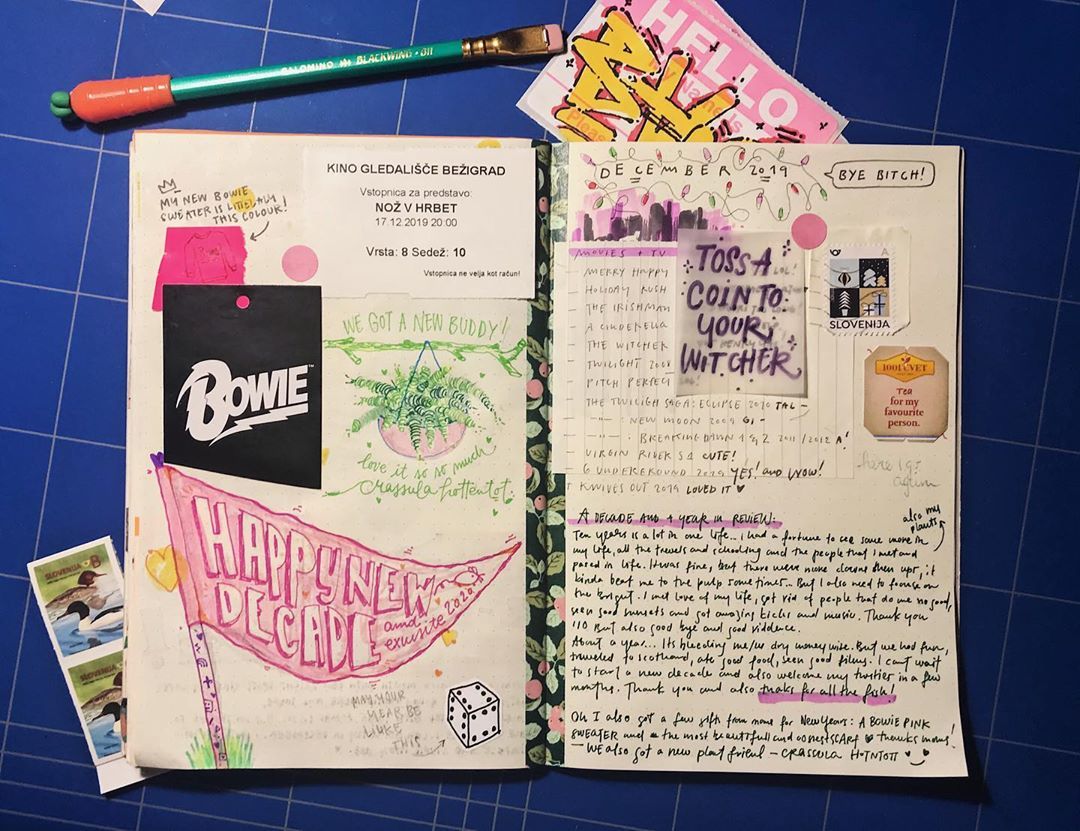 PALOMINO BLACKWING · 811
HELLO
my Name Is
Pleas
MY NEW BOWIE
SWEATER IS
THIS COLOUR!
KINO GLEDALIŠČE BEŽIGRAD
Vstopnica za predstavo:
NOŽ V HRBET
17.12.2019 20:00
Vrsta: 8 Sedež: 10
Vstopnica ne velja kot račun!
BOWIE™
WE GOT A NEW BUDDY!
love it so so much
crassula hottentot.
HAPPY NEW
DECADE
and
exquisite 2020
MAY YOUR
YEAR BE
LIKE
THIS
SLOVENIJA B
SLOVENIJA
DECEMBER 2019
BYE BITCH!
MOVIES + TV
MERRY HAPPY
HOLIDAY RUSH
THE IRISHMAN
A CINDERELLA
THE WITCHER
TWILIGHT 2008
PITCH PERFECT
THE TWILIGH SAGA: ECLIPSE 2010
NEW MOON 2009
BREAKING DAWN 1 & 2 2011/2012
VIRGIN RIVER S1 CUTE!
6 UNDERGROUND 2019 YES! AND WOW!
KNIVES OUT 2019 LOVED IT
TOSS A
COIN TO
YOUR
WITCHER
A
SLOVENIJA
1001 CVET
Tea
for my
favourite
person.
here is
also my
plants
A DECADE AND A YEAR IN REVIEW:
Ten years is a lot in one life... I had a fortune to see some more in
my life, all the travels and schooling and the people that I met and
pared in life. It was fine, but there were more downs then ups, it
kinda beat me to the pulp sometimes... But I also need to focus on
the bright. I met love of my life, got rid of people that do me no good,
seen good sunsets and got amazing kicks and music. Thank you
'10 But also good bye and good riddence.
About a year... Its bleeding me/us dry money wise. But we had fun,
traveled to scotland, ate good food, seen good films. I cant wait
to start a new decade and also welcome my thirties in a few
months. Thank you and also thaks for all the fish!
Oh I also got a few gifts from mome for New Years: A BOWIE PINK
SWEATER and the most beautifull and SCARF thanks mom!
WE also got a new plant friend – CRASSULA